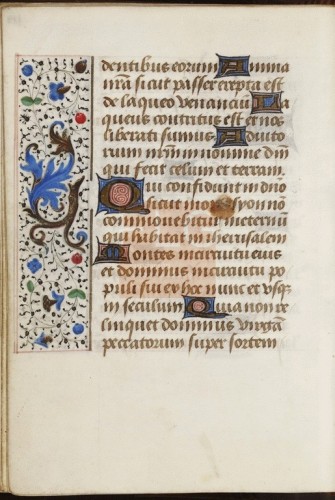 dentibus eorum Anima
nr̄a sicut passer erepta est
de laqueo venanciū La
queus contritus est et nos
liberati sumus Adiuto
rium nr̄m in nomine dn̄i
qui fecit celum et terram
Qui confidunt in dn̄o
sicut mons syon nō
commovebitur in eternū
qui habitat in iherusalem
Montes in circuitu eius
et dominus in circuitu po
puli sui ex hoc nunc et vsq̄
in seculum Quia non re
linquet dominus virgam̄
peccatorum super sortem